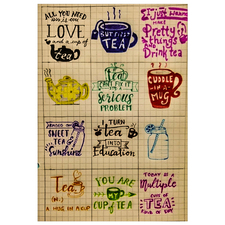 ALL YOU NEED
is
LOVE
and a cup of
tea
BUT FIRST
TEA
I Just Wanna
MAKE
Pretty
things
AND
Drink tea
If
tea
CAN'T FIX IT
it's a
SERIOUS
PROBLEM
CUDDLE
IN A
MUG
SWEET
TEA
Sunshine
I TURN
tea
INTO
Education
Tea
(n.)
A HUG IN A CUP
YOU ARE
MY
CUP of TEA
TODAY IS A
Multiple
CUPS OF
TEA
KIND OF DAY